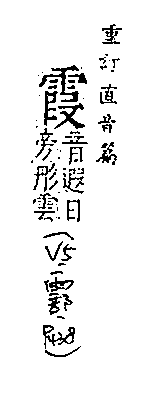 重訂直音篇
霞音遐日
旁形雲
(V5.雨部.P428)